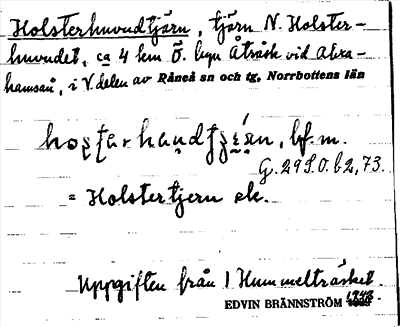 Holsterhuvudtjärn, tjärn N. Holster-
huvudet, ca 4 km Ö. byn Åträsk, vid Abra-
hamsån, i V. delen av Råneå sn och tg, Norrbottens län
bf. m.
G. 29 S. O. b 2, 73.
= Holstertjern ek.
Uppgiften från 1 Hummelträsket.
EDVIN BRÄNNSTRÖM